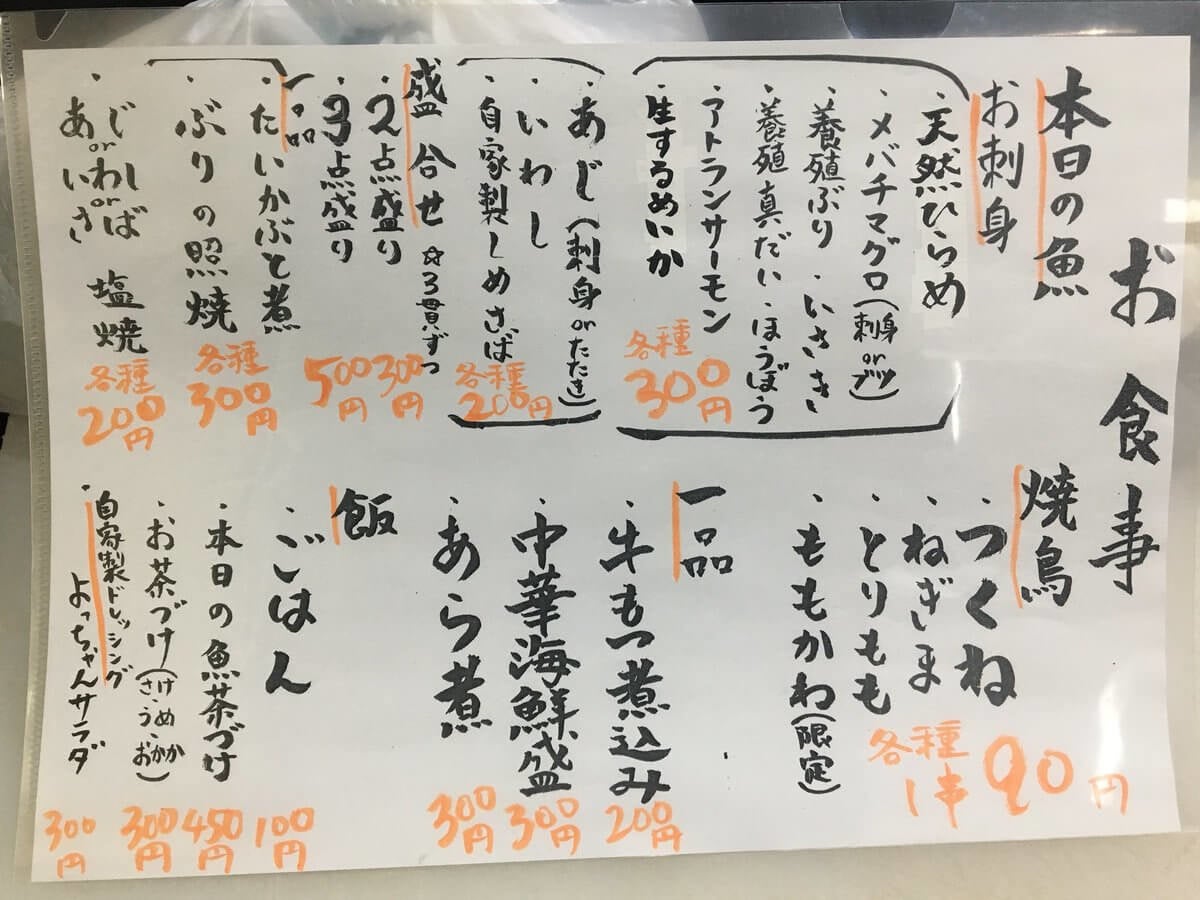 お食事
本日の魚
お刺身
・天然ひらめ
・メバチマグロ(刺身orブツ)
・養殖ぶり・いさき
・養殖真だい・ほうぼう
・アトランサーモン
・生するめいか
各種
300円
・あじ(刺身orたたき)
・いわし
・自家製しめさば
各種
200円
盛合せ ☆3貫ずつ
・2点盛り
300円
・3点盛り
500円
一品
・たいかぶと煮
・ぶりの照焼
各種
300円
・あじorいわしorさば 塩焼
各種
200円
焼鳥
・つくね
・ねぎま
・とりもも
・ももかわ(限定)
各種
1串
90円
一品
・牛もつ煮込み
200円
・中華海鮮盛
300円
・あら煮
300円
飯
・ごはん
100円
・本日の魚茶づけ
450円
・お茶づけ(さけ・うめ・おかか)
300円
・自家製ドレッシング
よっちゃんサラダ
300円